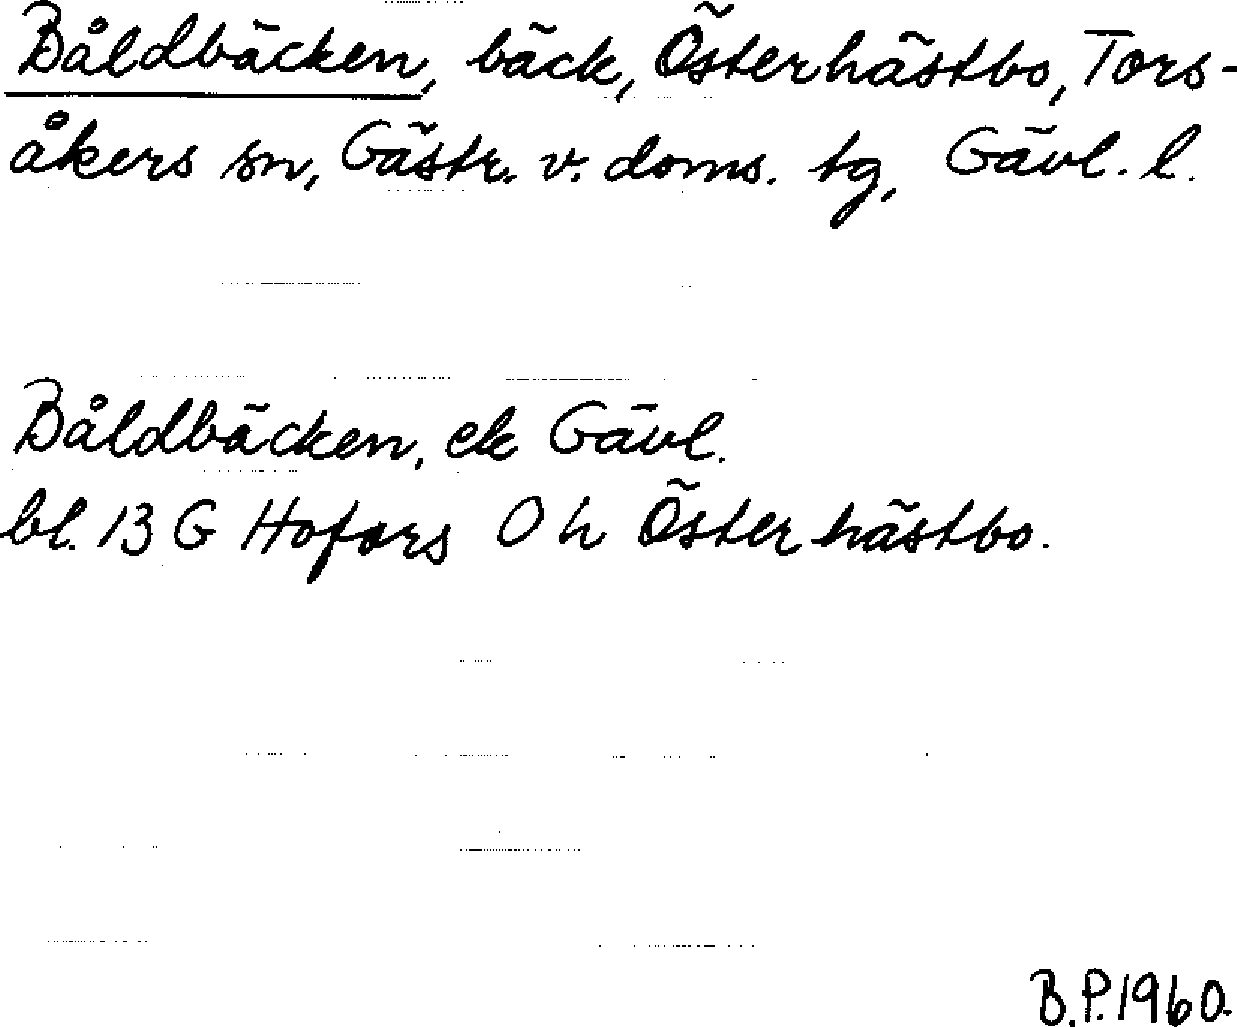 Båldbäcken, bäck, Österhästbo, Tors-
åkers sn, Gästr. v. doms. tg, Gävl. l.
Båldbäcken, ek Gävl.
bl. 13 G Hofors 0 h Österhästbo.
B.P. 1960.